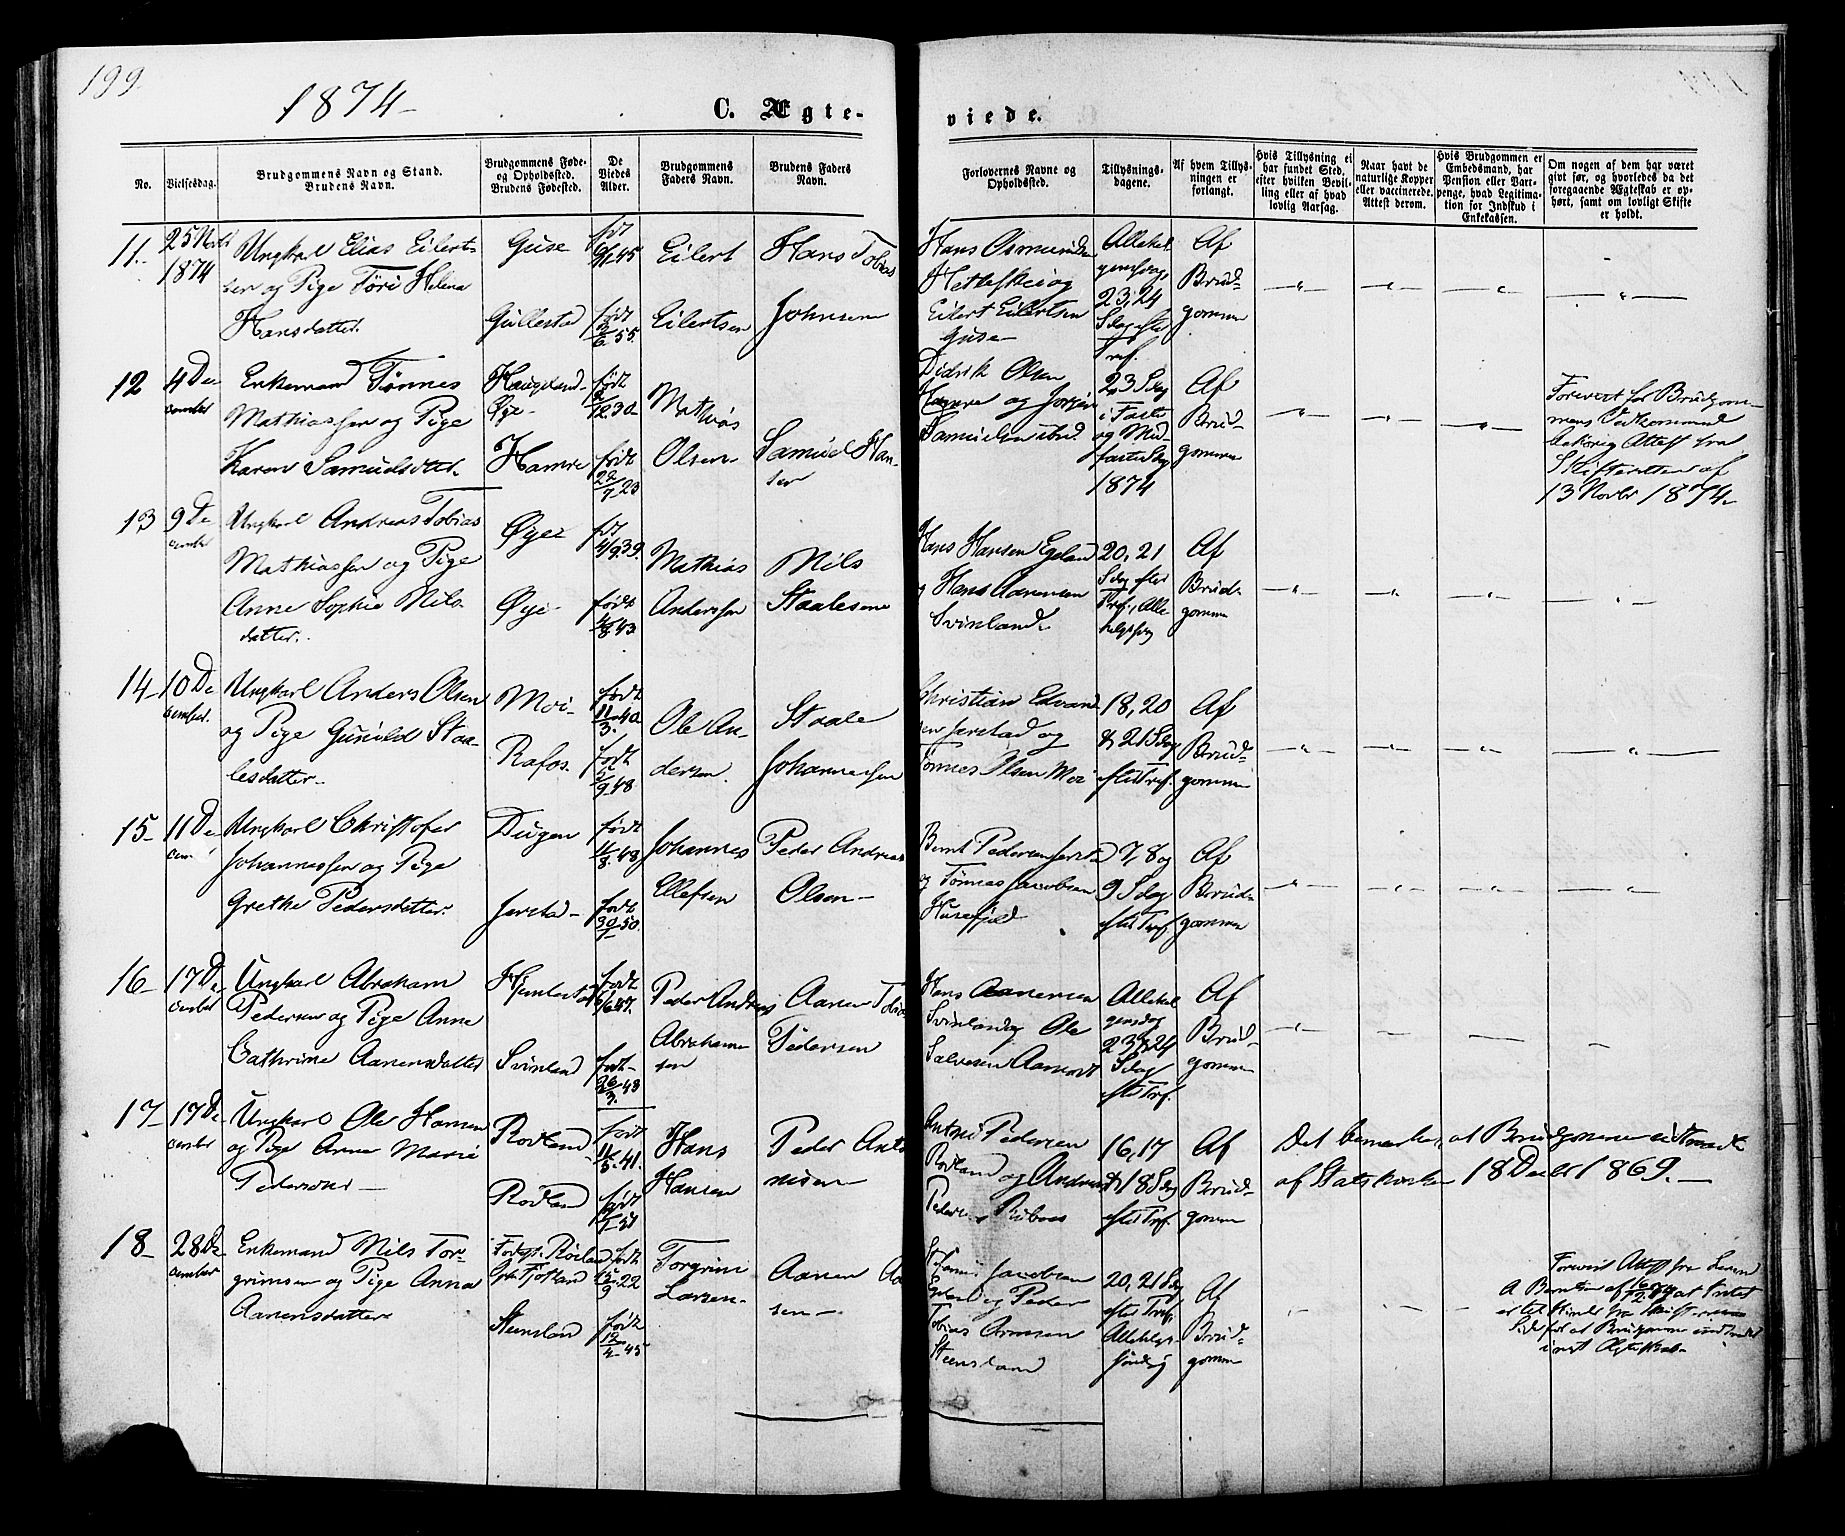 199
1874
C. Ægte-
viede.
No.
Vielsesdag.
Brudgommens Navn og Stand.
Brudens Navn.
Brudgommens Føde-
og Opholdssted.
Brudens Fødested.
De
Viedes
Alder.
Brudgommens
Faders Navn.
Brudens Faders
Navn.
Forlovernes Navne og
Opholdssted.
Tillysnings-
dagene.
Af hvem Tillys-
ningen er
forlangt.
Hvis Tillysning ei
har fundet Sted,
efter hvilken Bevil-
ling eller af hvad
lovlig Aarsag.
Naar havt de
naturlige Kopper
eller vaccinerede.
Attest derom.
Hvis Brudgommen er
Embedsmand, har
Pension eller Vart-
penge, hvad Legitima-
tion for Indskud i
Enkekassen.
Om nogen af dem har været
givt før, og hvorledes da det
foregaaende Ægteskab er op-
hørt, samt om lovligt Skifte
er holdt.
11.
1874
Ungkarl Elias Eilert-
sen og Pige Tøri Helena
Hansdatter.
Guse
Gullestad
født
55.
Eilert
Eilertsen
Hans Tobias
Johnsen
Hans Osmundsen
Eilert Eilertsen
Guse
23, 24
Af
Brud-
gommen
12
4 De
cember
Enkemand Tønnes
Mathiassen og Pige
Karen Samuelsdtter.
Haugeland
Øye
Hamre
født
30
født
22/7 23
Mathias
Olsen
Samuel Han-
sen
Didrik Olsen
Hamre og Jørgen
Samuelsen ibid.
2, 3 Sdag
i Faste
og Mid-
faste Sdag
1874
Af
Brud-
gommen
Forevist for Brudgom-
mens Vedkommende
Attest fra
Skifteretten af
13 Novbr 1874
13
9 De
cember
Ungkarl Andreas Tobias
Mathiassen og Pige
Anne Sophie Nils-
datter.
Øye
Øye
4/9 39.
født
43
Mathias
Anderssen
Nils
Staalesen
Hans Hansen Egeland
og Hans Aanensen
Svinland
20, 21
Sdag efter
Tref., Alle
Af
Brud-
gommen
14
10 De
cember
Ungkarl Anders Olsen
og Pige Gunild Staa-
lesdatter
Moi
Rafos
født
11/3 40
født
9 48
Ole An-
dersen.
Staale
Johannesen
Christian Edvard
sen Jerstad og
Tønnes Olsen Moi
18, 20
& 21 Sdag
efter Tref.
Af
Brud-
gommen
15
11 De
Ungkarl Christofer
Johannessen og Pige
Grethe Pedersdatter.
Dugan
Jerstad
født
8 48
født
50.
Johannes
Ellefsen
Peder Andreas
Olsen
Bernt Pedersen Jersta
og Tønnes Jacobsen
Husefjeld
7, 8 og
9 Sdag
efter Tref.
Af
Brud-
gommen
16
17 De
cember
Ungkarl Abraham
Pedersen og Pige Anne
Cathrine Aanensdatter
Svinland
født
47.
født
26/3 48
Peder Andreas
Abraham-
sen
Aanen Tobias
Pedersen
Hans Aanensen
Svinland og Ole
Salvesen Aamodt
23 & 24
Sdag
efter Tref.
Af
Brud-
gommen
17
17 De
cember
Ungkarl Ole Hansen
og Pige Anne Marie
Pedersdtr
Rødland
Rødland
født
11/5 41.
født
Hans
Hansen
Peder Ant-
nisen
Pedersen
Rødland og Andreas
16, 17
& 18 Sdag
efter Tref.
Af
Brud-
gommen
Det bemærkes, at Brudgommen udtraadt
af Statskirken 18 Decbr 1869.
18
28 De
cember
Enkemand Nils Tor-
grimsen og Pige Anna
Aanensdatter
Steinsland
født
15/9 22
født
12/4 45
Torgrim
Larsen
Aanen
sen
Jacobsen
og Peder
Tobias
Steensland
20, 21 Sdag
efter Tref.
Af
Brud-
gommen